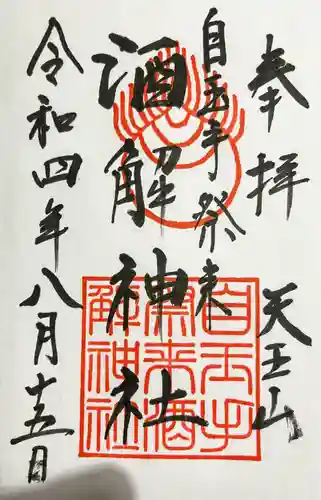 奉拝 天王山
自玉手祭来
酒解神社
令和四年八月十五日
自玉手
祭来酒
解神社